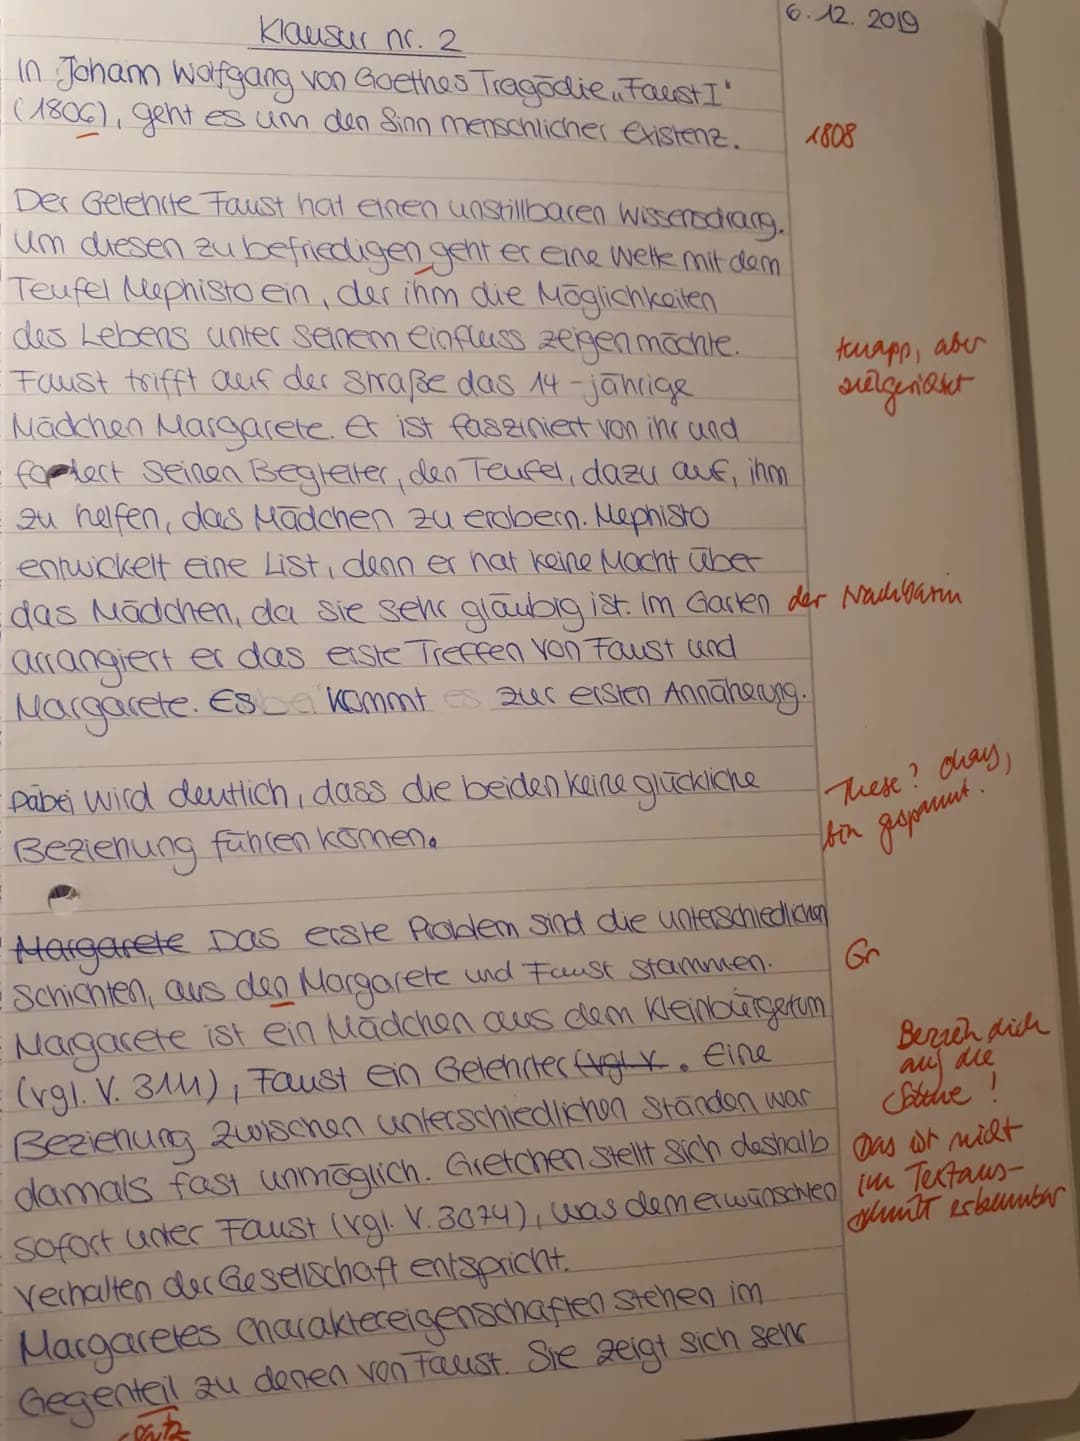 6. 12. 2019
Klausur nr. 2
In Johann Wolfgang von Goethes Tragödie „Faust I"
(1806), geht es um den Sinn menschlicher Existenz.
1808
Der Gelehrte Faust hat einen unstillbaren Wissensdrang.
Um diesen zu befriedigen geht er eine Wette mit dem
Teufel Mephisto ein, der ihm die Möglichkeiten
des Lebens unter seinem einfluss zeigen möchte.
knapp, aber
zielgerichtet
Faust trifft auf der Straße das 14-jährige
Mädchen Margarete. Er ist fasziniert von ihr und
fordert seinen Begleiter, den Teufel, dazu auf, ihm
zu helfen, das Mädchen zu erobern. Mephisto
entwickelt eine List, denn er hat keine Macht über
das Mädchen, da sie sehr gläubig ist. Im Garten der Nachbarin
arrangiert er das erste Treffen von Faust und
Margarete. Es kommt zur ersten Annäherung.
Dabei wird deutlich, dass die beiden keine glückliche
Beziehung führen können.
These? Okay,
bin gespannt.
Margarete Das erste Problem sind die unterschiedlichen
Schichten, aus den Margarete und Faust stammen.
Gr
Magarete ist ein Mädchen aus dem Kleinbürgertum
(vgl. V. 3111), Faust ein Gelehrter (vgl. V. Eine
Beziehung zwischen unterschiedlichen Ständen war
damals fast unmöglich. Gretchen stellt sich deshalb
sofort unter Faust (vgl. V. 3074), was dem erwünschten
Verhalten der Gesellschaft entspricht.
Bezieh dich
auf die
Szene!
Das ist nicht
im Textaus-
schnitt erkennbar
Margaretes Charaktereigenschaften stehen im
Gegenteil zu denen von Faust. Sie zeigt sich sehr
satz